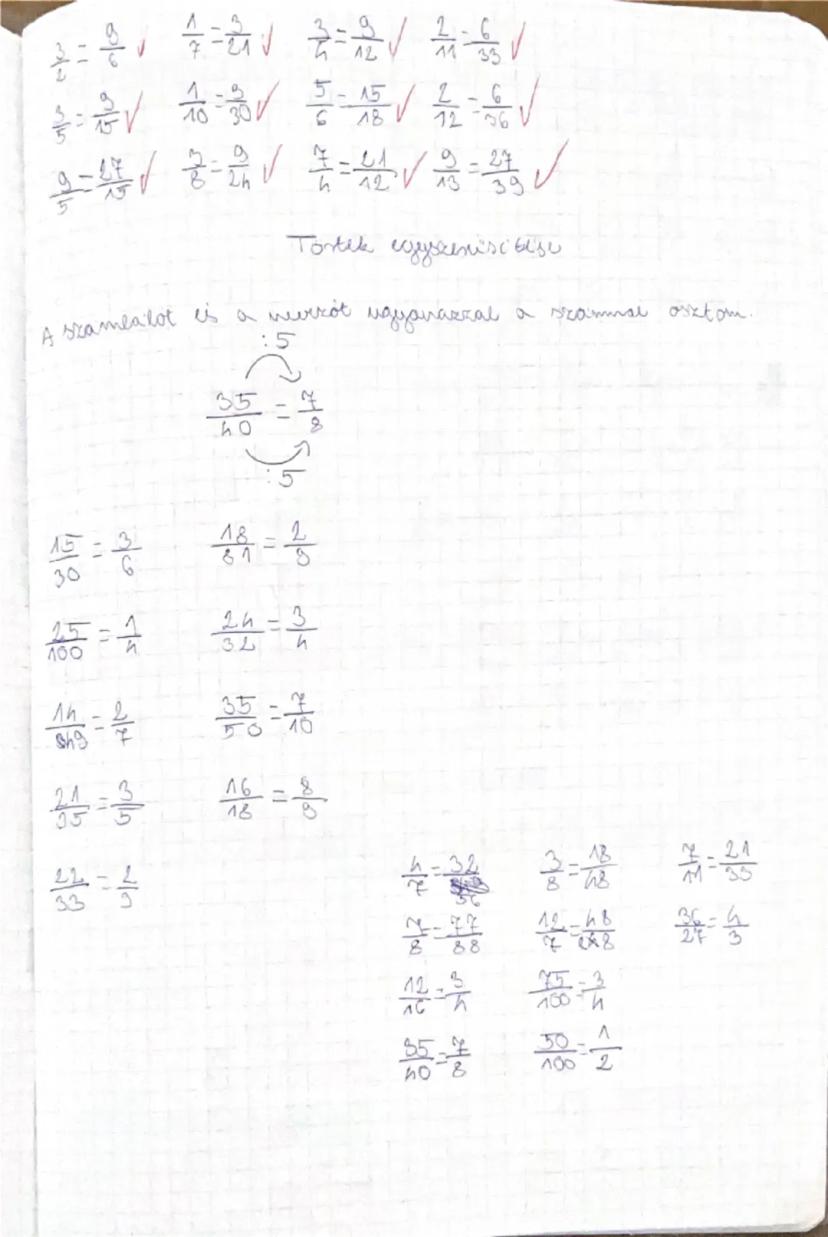 3/2 = 9/6 1/7 = 3/21 3/4 = 9/12 2/11 = 6/33
3/5 = 9/15 1/10 = 3/30 5/6 = 15/18 2/12 = 6/36
9/5 = 27/15 3/8 = 9/24 7/4 = 21/12 9/13 = 27/39
Törtek egyszerűsítése
A számlálót és a nevezőt ugyanazzal a számmal osztom.
:5
35/40 = 7/8
:5
15/30 = 3/6 18/81 = 2/9
25/100 = 1/4 24/32 = 3/4
14/49 = 2/7 35/50 = 7/10
21/35 = 3/5 16/18 = 8/9
22/33 = 2/3
4/7 = 32/56 3/8 = 18/48 7/11 = 21/33
7/8 = 77/88 12/7 = 48/28 36/27 = 4/3
12/16 = 3/4 75/100 = 3/4
35/40 = 7/8 50/100 = 1/2